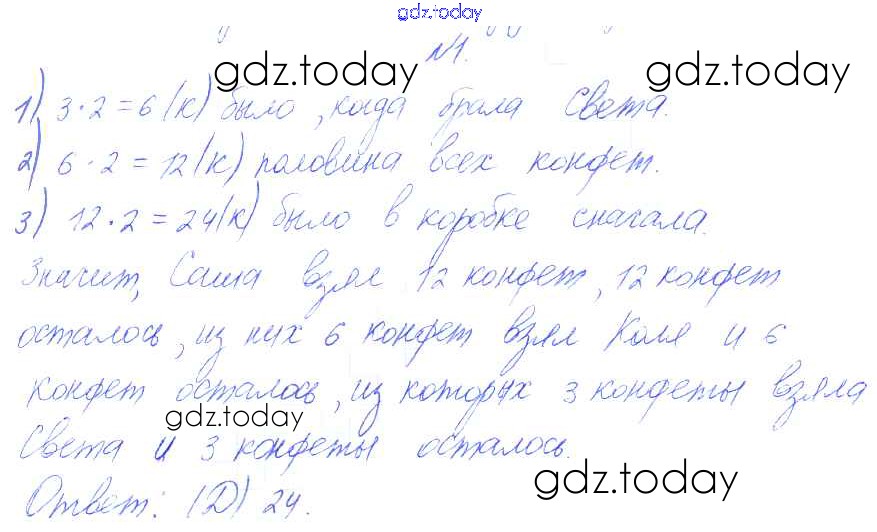 gdz.today
№1.
gdz.today gdz.today
1) 3·2=6(к) было, когда брала Света.
2) 6·2=12(к) половина всех конфет.
3) 12·2=24(к) было в коробке сначала.
Значит, Саша взял 12 конфет, 12 конфет
осталось, из них 6 конфет взял Коля и 6
конфет осталось, из которых 3 конфеты взяла
gdz.today
Света и 3 конфеты осталось.
gdz.today
Ответ: (D) 24.